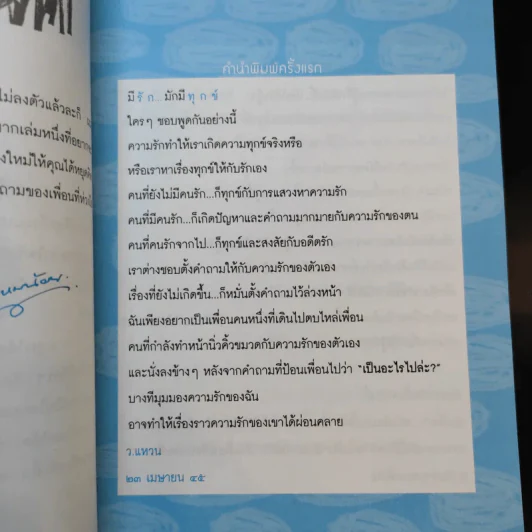 ไม่ลงตัวแล้วละก็
ากเล่มหนึ่งที่อยาก
งใหม่ให้คุณได้หยุด
ถามของเพื่อนที่ห่ว
คำนำพิมพ์ครั้งแรก
มีรัก...มักมีทุกข์
ใครๆ ชอบพูดกันอย่างนี้
ความรักทำให้เราเกิดความทุกข์จริงหรือ
หรือเราหาเรื่องทุกข์ให้กับรักเอง
คนที่ยังไม่มีคนรัก...ก็ทุกข์กับการแสวงหาความรัก
คนที่มีคนรัก...ก็เกิดปัญหาและคำถามมากมายกับความรักของตน
คนที่คนรักจากไป...ก็ทุกข์และสงสัยกับอดีตรัก
เราต่างชอบตั้งคำถามให้กับความรักของตัวเอง
เรื่องที่ยังไม่เกิดขึ้น...ก็หมั่นตั้งคำถามไว้ล่วงหน้า
ฉันเพียงอยากเป็นเพื่อนคนหนึ่งที่เดินไปตบไหล่เพื่อน
คนที่กำลังทำหน้านิ่วคิ้วขมวดกับความรักของตัวเอง
และนั่งลงข้างๆ หลังจากคำถามที่ป้อนเพื่อนไปว่า “เป็นอะไรไปล่ะ?”
บางทีมุมมองความรักของฉัน
อาจทำให้เรื่องราวความรักของเขาได้ผ่อนคลาย
ว.แหวน
๒๓ เมษายน ๔๕